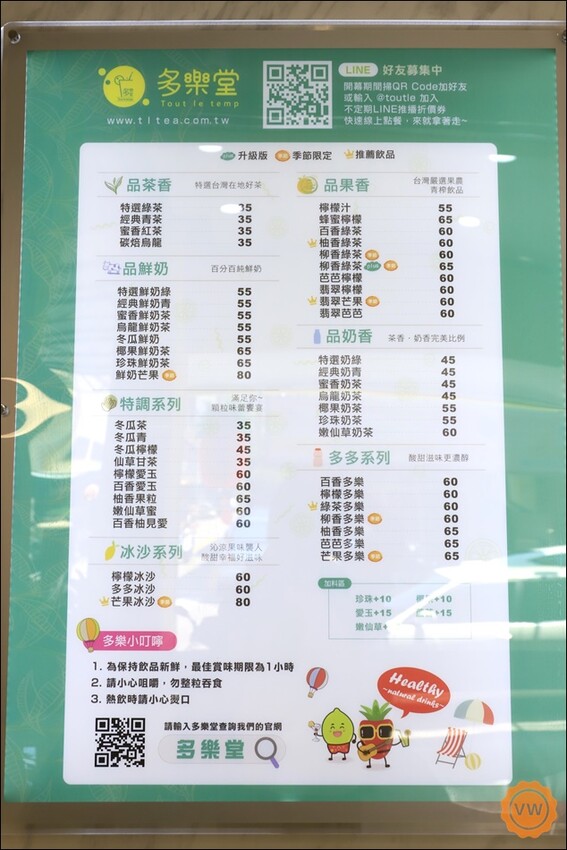 多樂堂
Tout le temp
www.tltea.com.tw
LINE 好友募集中
開幕期間掃QR Code加好友
或輸入 @toutle 加入
不定期LINE推播折價券
快速線上點餐，來就拿著走~
升級版 季節限定 推薦飲品
品茶香 特選台灣在地好茶
特選綠茶 35
經典青茶 35
蜜香紅茶 35
碳焙烏龍 35
品鮮奶 百分百純鮮奶
特選鮮奶綠 55
經典鮮奶青 55
蜜香鮮奶茶 55
烏龍鮮奶茶 55
冬瓜鮮奶 55
椰果鮮奶茶 65
珍珠鮮奶茶 65
鮮奶芒果 80
特調系列 滿足你~
顆粒味蕾饗宴
冬瓜茶 35
冬瓜青 35
冬瓜檸檬 45
仙草甘茶 35
檸檬愛玉 60
百香愛玉 60
柚香果粒 65
嫩仙草蜜 60
百香柚見愛 60
冰沙系列 沁涼果味襲人
酸甜幸福好滋味
檸檬冰沙 60
多多冰沙 60
芒果冰沙 80
品果香 台灣嚴選果農
青榨飲品
檸檬汁 55
蜂蜜檸檬 65
百香綠茶 60
柚香綠茶 60
柳香綠茶 60
柳香綠茶 65
芭芭檸檬 60
翡翠檸檬 60
翡翠芒果 60
翡翠芭芭 60
品奶香 茶香、奶香完美比例
特選奶綠 45
經典奶青 45
蜜香奶茶 45
烏龍奶茶 45
椰果奶茶 55
珍珠奶茶 55
嫩仙草奶茶 60
多多系列 酸甜滋味更濃醇
百香多樂 60
檸檬多樂 60
綠茶多樂 60
柳香多樂 60
柚香多樂 65
芭芭多樂 65
芒果多樂 65
加料區
珍珠+10 +10
愛玉+15 +15
嫩仙草+
多樂小叮嚀
1. 為保持飲品新鮮，最佳賞味期限為1小時
2. 請小心咀嚼，勿整粒吞食
3. 熱飲時請小心燙口
請輸入多樂堂查詢我們的官網
多樂堂
Healthy
~natural drinks~
VW